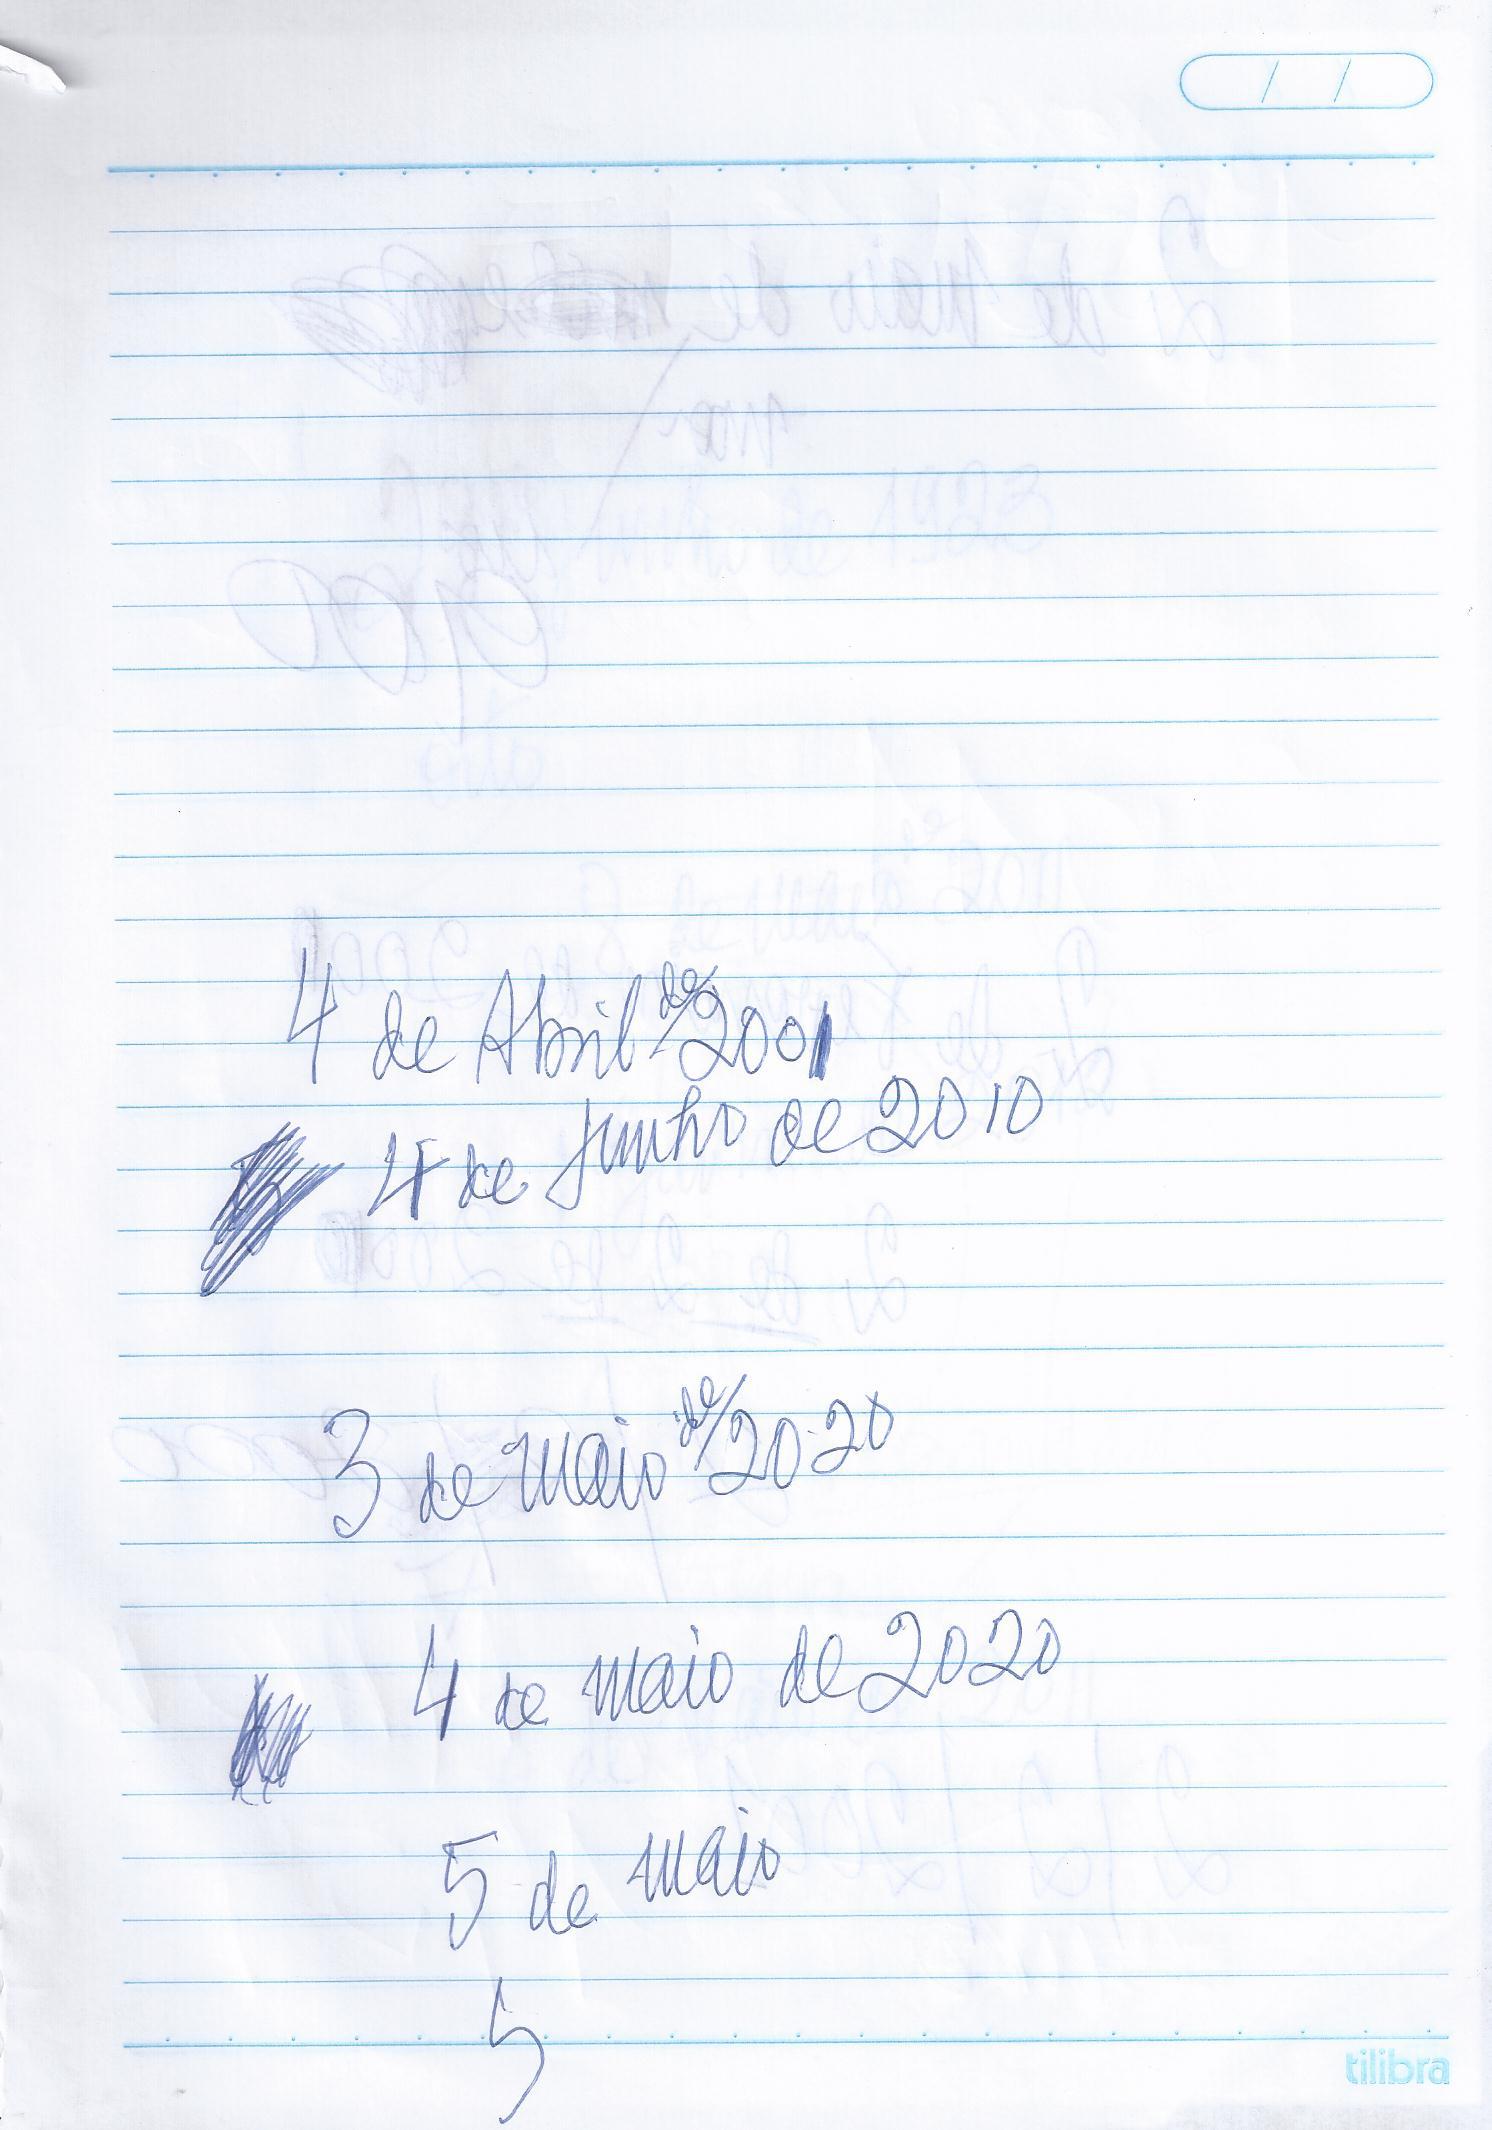 4 de Abril de/2001
4 de junho de 2010
3 de maio de/2020
4 de maio de 2020
5 de maio
5
tilibra